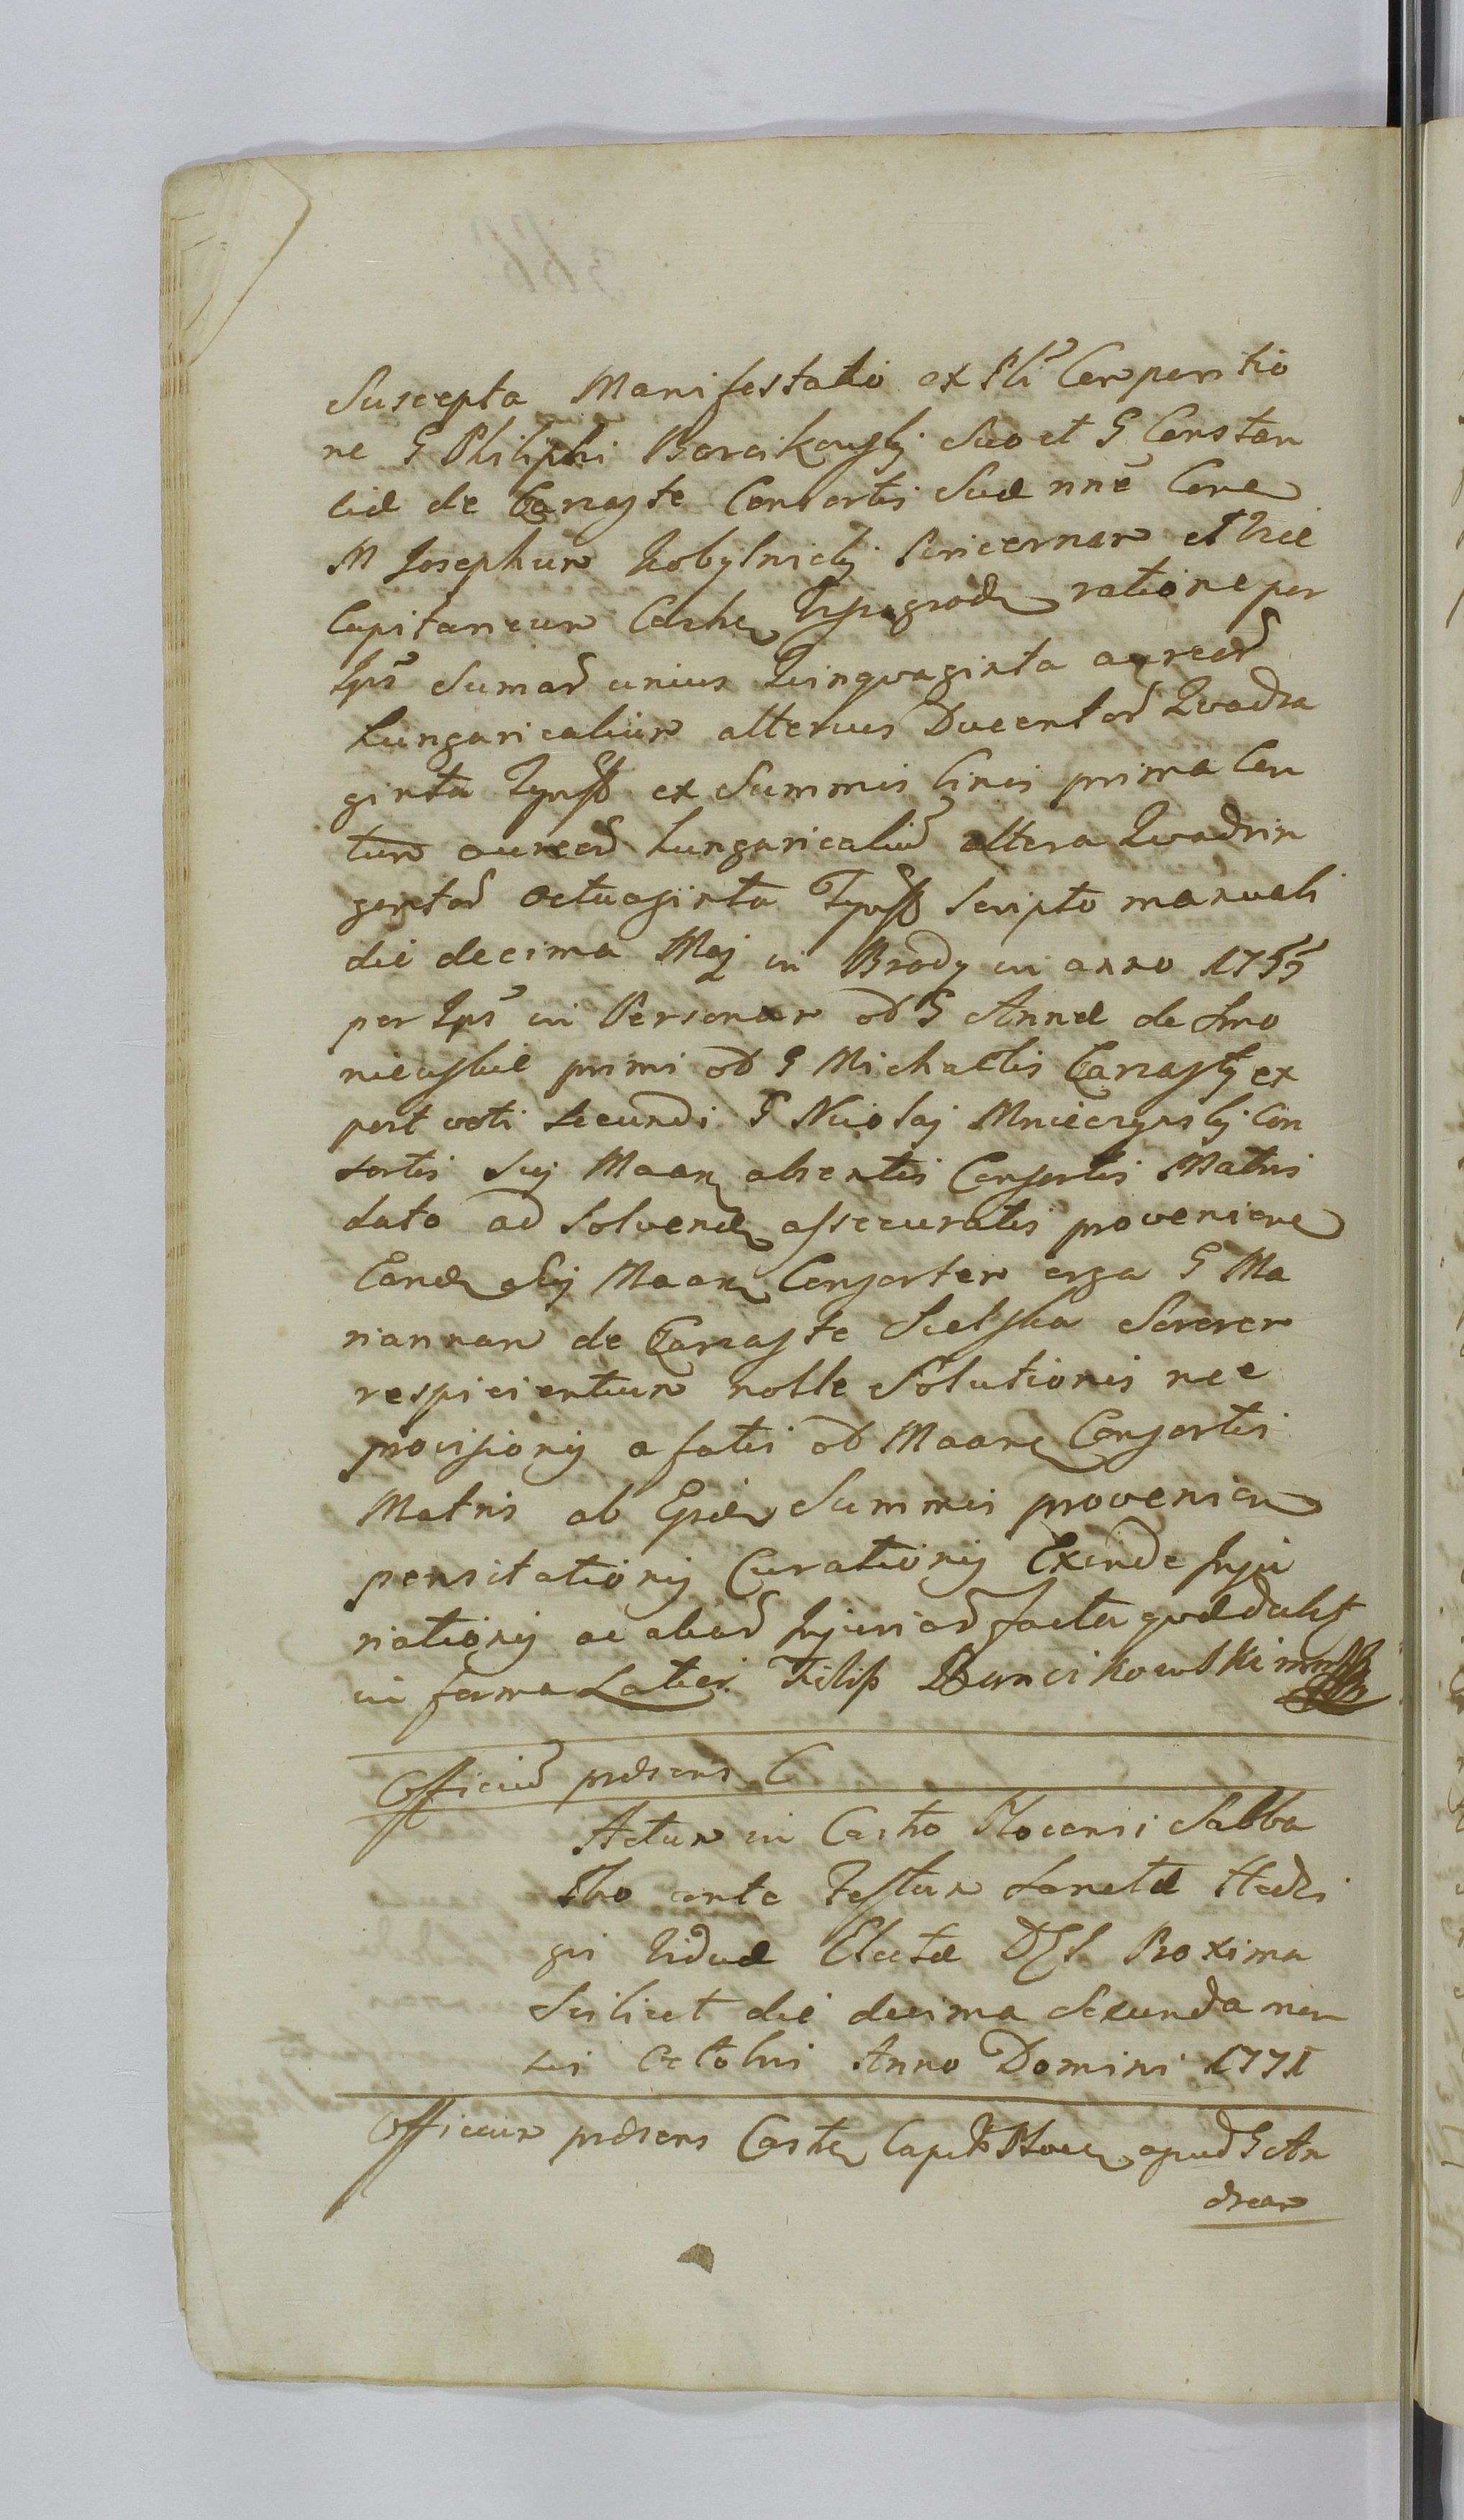 Suscepta Manifestatio ex Pli Comparitio
ne G Philiphi Barcikowskj Suo et G Constan
tiæ de Carraste Consortis Suæ nne Cone
M Josephum Kobylnickj Pincernam et Vice
Capitaneum Castre Vyssegrod ratione per
Ips Sumaɍ unius Quinqvaginta aureoɍ
hungaricalium alterius Ducentoɍ Qvadra
ginta Tynff ex Summis binis prima Cen
tum aureoɍ hungaricaliū altera Qvadrin
gentoɍ Octuaginta Tynff Scripto manuali
die decima Maj in Brody in anno 1755
per Ips in Personam oɫ G Annæ de
primi oɫ G Michaelis Carraskj ex
post voti secundi G Nicolaj Mnieczynskj Con
sortis Suj Maan absentis Consortis Matris
dato ad Solvend assecuratis provenien
Eand Suj Maan Consortem erga G Ma
riannam de Carraste Sielska Sororem
respicientium nolle Solutionis nec
provisionis a fatis oɫ Maan Consortis
Matris ab Eisd Summis provenien
pensitationis Curationis Exinde Inju
riationis ac aliaɍ Injuriaɍ facta qvæ
in forma Latiori Filip Barcikowski mpp
Officiū præsens C
Actum in Castro Plocensi Sabba
tho ante Festum Sanctæ Hedvi
gis Viduæ Electæ Proxima
Scilicet die decima Secunda men
sis Octobris Anno Domini 1771
Officium præsens Castre Capit Ploce apud G An
dream